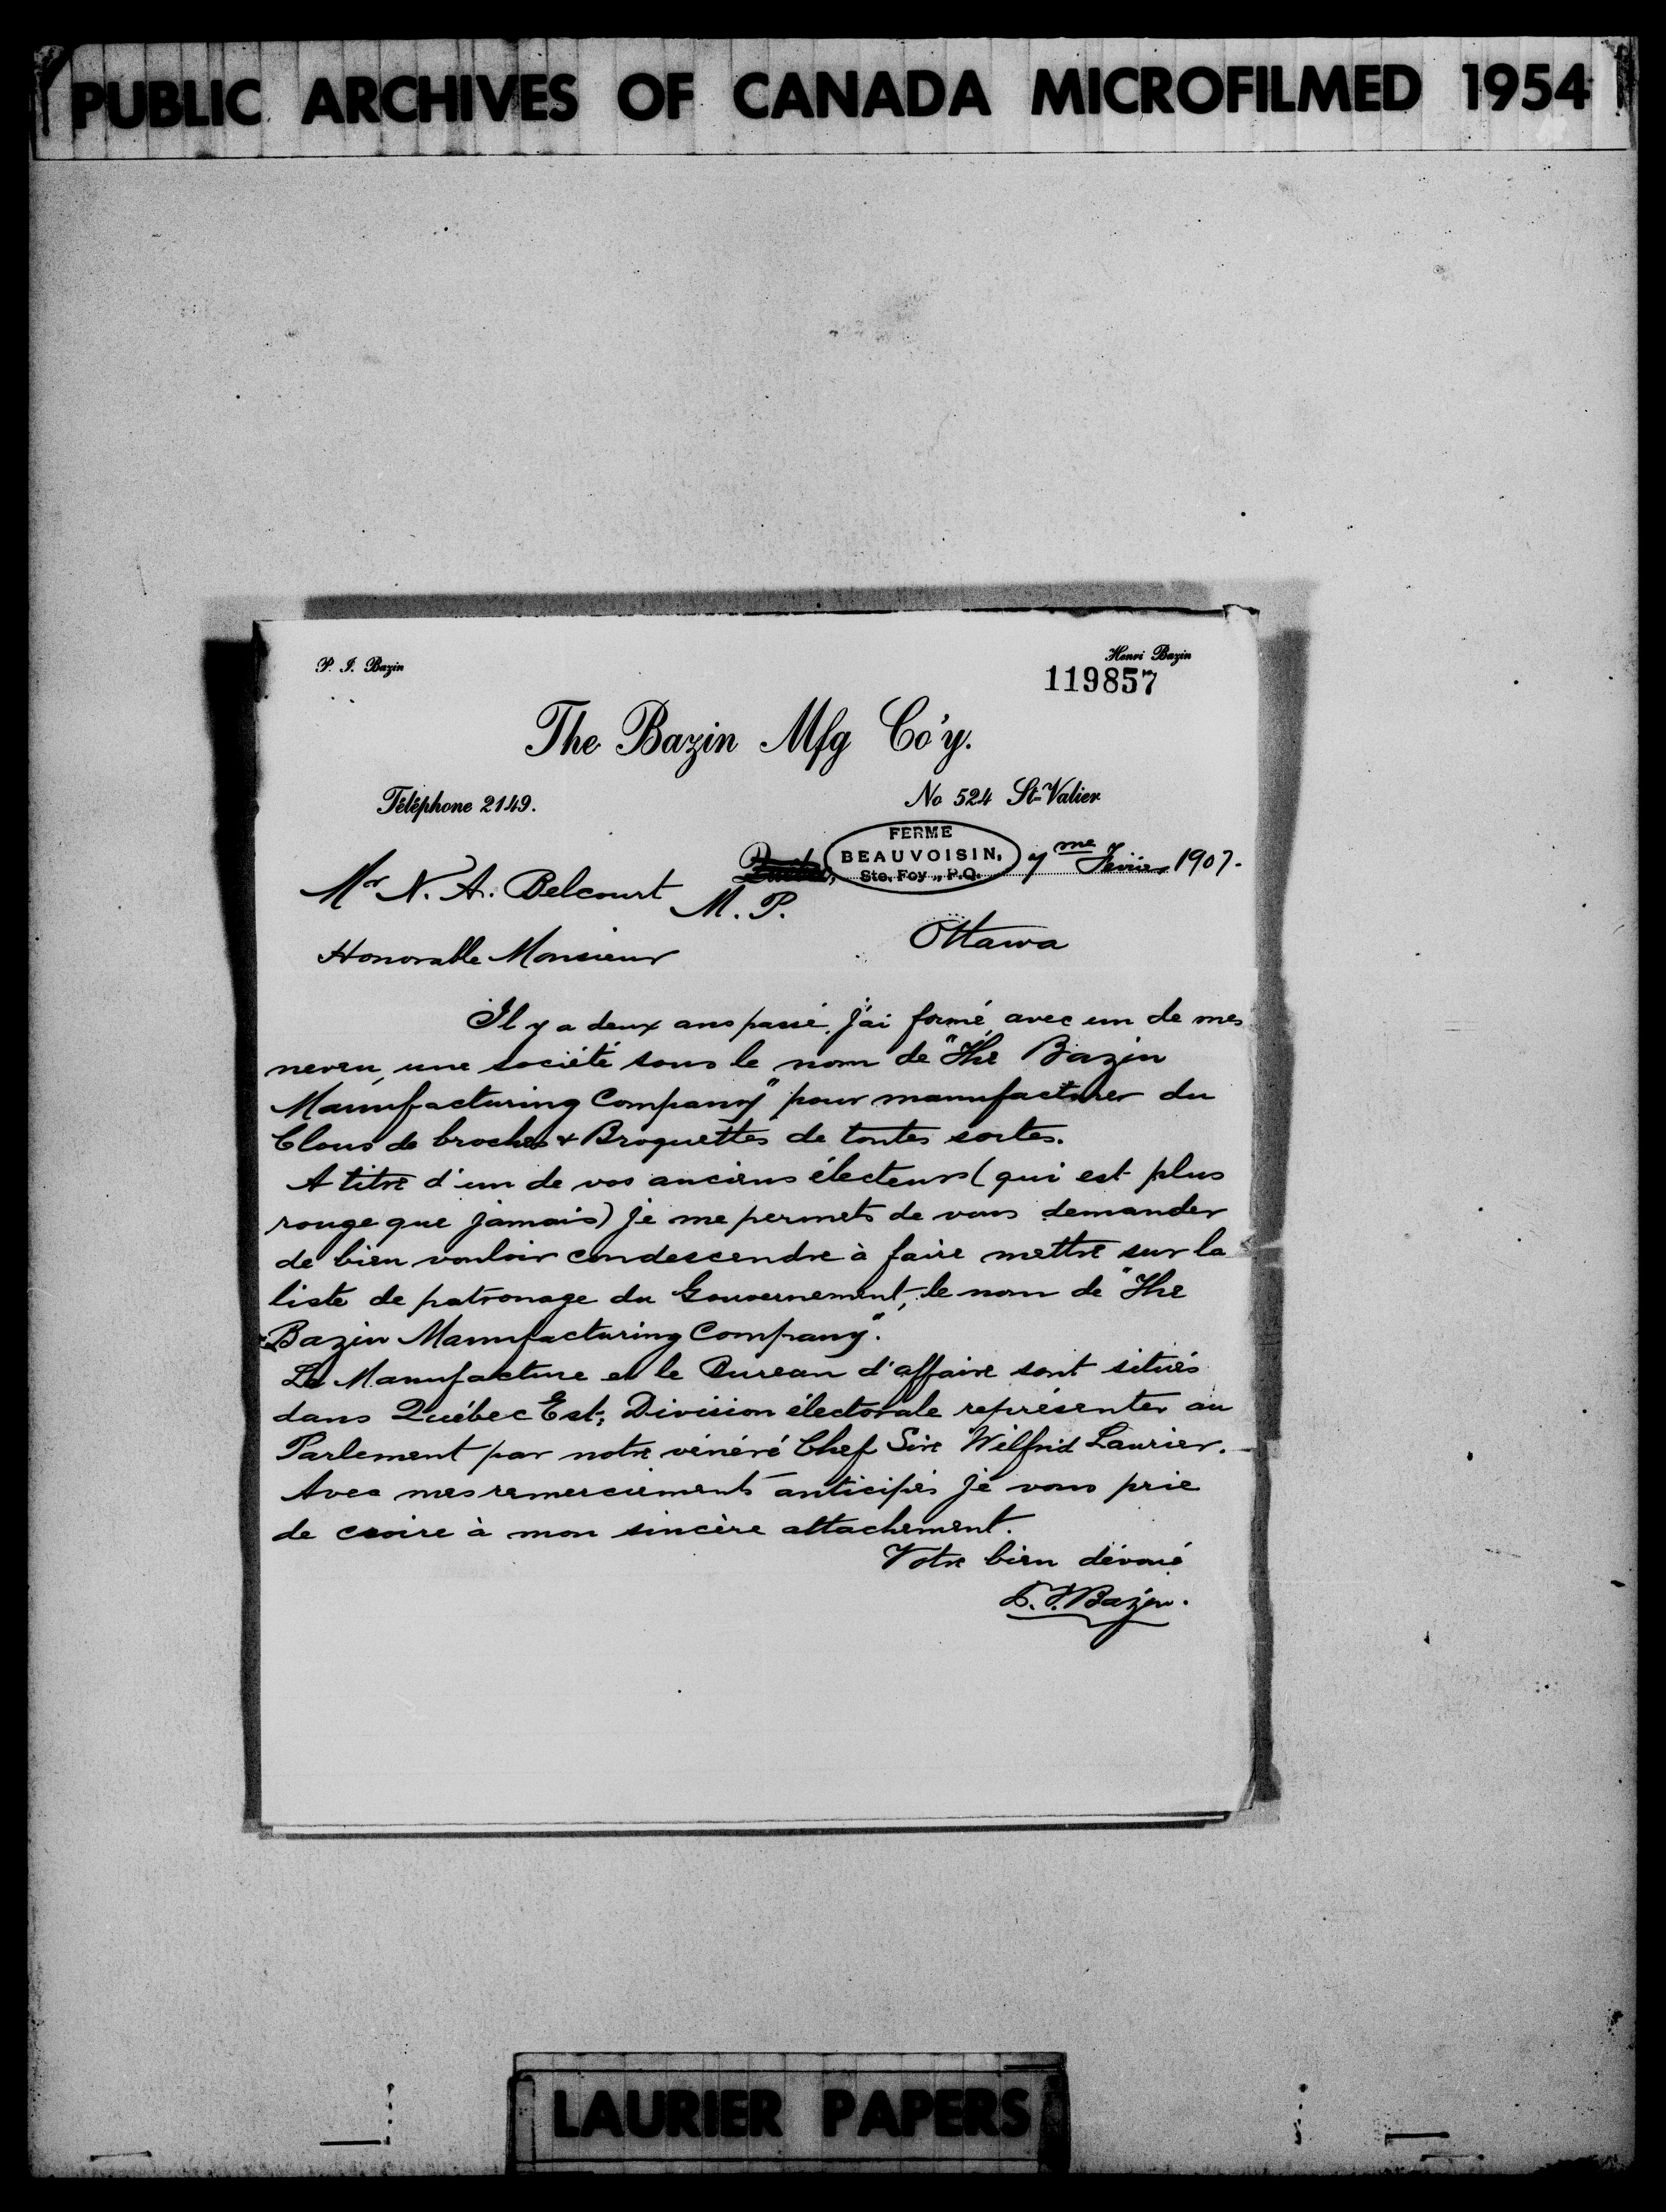 PUBLIC ARCHIVES OF CANADA MICROFILMED 1954
P. I. Bazin
Henri Bazin
119857
The Bazin Mfg Co'y.
Téléphone 2149.
No 524 St-Valier
Québec,
FERME
BEAUVOISIN,
Ste. Foy, P.Q.
7me Fevrier 1907.
Mr N. A. Belcourt
M. P.
Ottawa
Honorable Monsieur
Il y a deux ans passé, j'ai formé avec un de mes
neveu, une société sous le nom de "The Bazin
Manufacturing Company" pour manufacturer du
Clous de broches & Broquettes de toutes sortes.
A titre d'un de vos anciens électeurs (qui est plus
rouge que jamais) je me permets de vous demander
de bien vouloir condescendre à faire mettre sur la
liste de patronage du Gouvernement, le nom de "The
Bazin Manufacturing Company".
La Manufacture et le Bureau d'affaire sont situés
dans Québec Est, Division électorale représenter au
Parlement par notre vénéré Chef Sire Wilfrid Laurier.
Avec mes remerciements anticipés je vous prie
de croire à mon sincère attachement.
Votre bien dévoué
P. I. Bazin.
LAURIER PAPERS